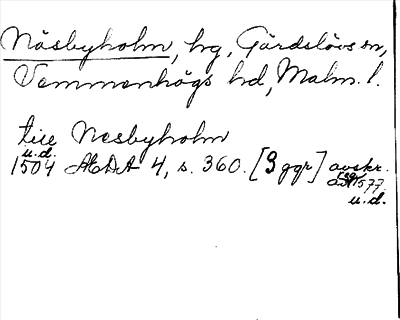 Näsbyholm, hg, Gärdslövs sn,
Vemmenhögs hd, Malm. l.
till Nesbyholm
u.d.
1504 ÆDA 4, s. 360. [3 ggr] avskr.
1577.
u.d.